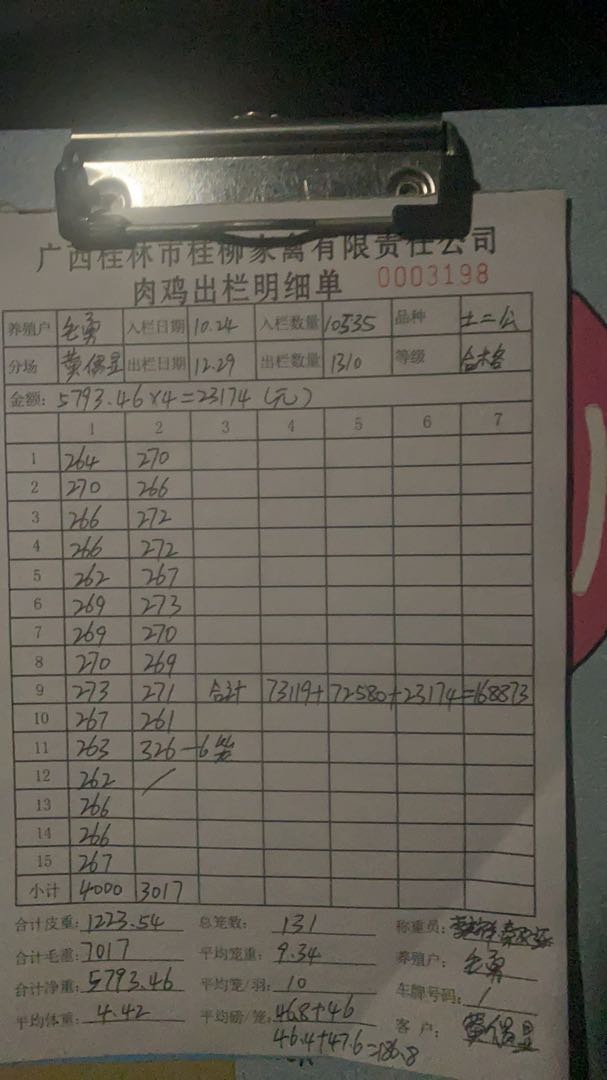 广西桂林市桂柳家禽有限责任公司
肉鸡出栏明细单 0003198
养殖户 毛勇 入栏日期 10.24 入栏数量 10535 品种 土二公
分场 黄偶显 出栏日期 12.29 出栏数量 1310 等级 合格
金额: 5793.46×4=23174(元)
1 2 3 4 5 6 7
1 264 270
2 270 266
3 266 272
4 266 272
5 262 267
6 269 273
7 269 270
8 270 269
9 273 271 合计 73119+72580+23174=168873
10 267 261
11 263 326-6笼
12 262 /
13 266
14 266
15 267
小计 4000 3017
合计皮重: 1223.54 总笼数: 131 称重员:
合计毛重: 7017 平均笼重: 9.34 养殖户: 毛勇
合计净重: 5793.46 平均笼/羽: 10 车牌号码: 1
平均体重: 4.42 平均磅/笼: 46.8+46 客户: 黄偶显
46.4+47.6=186.8